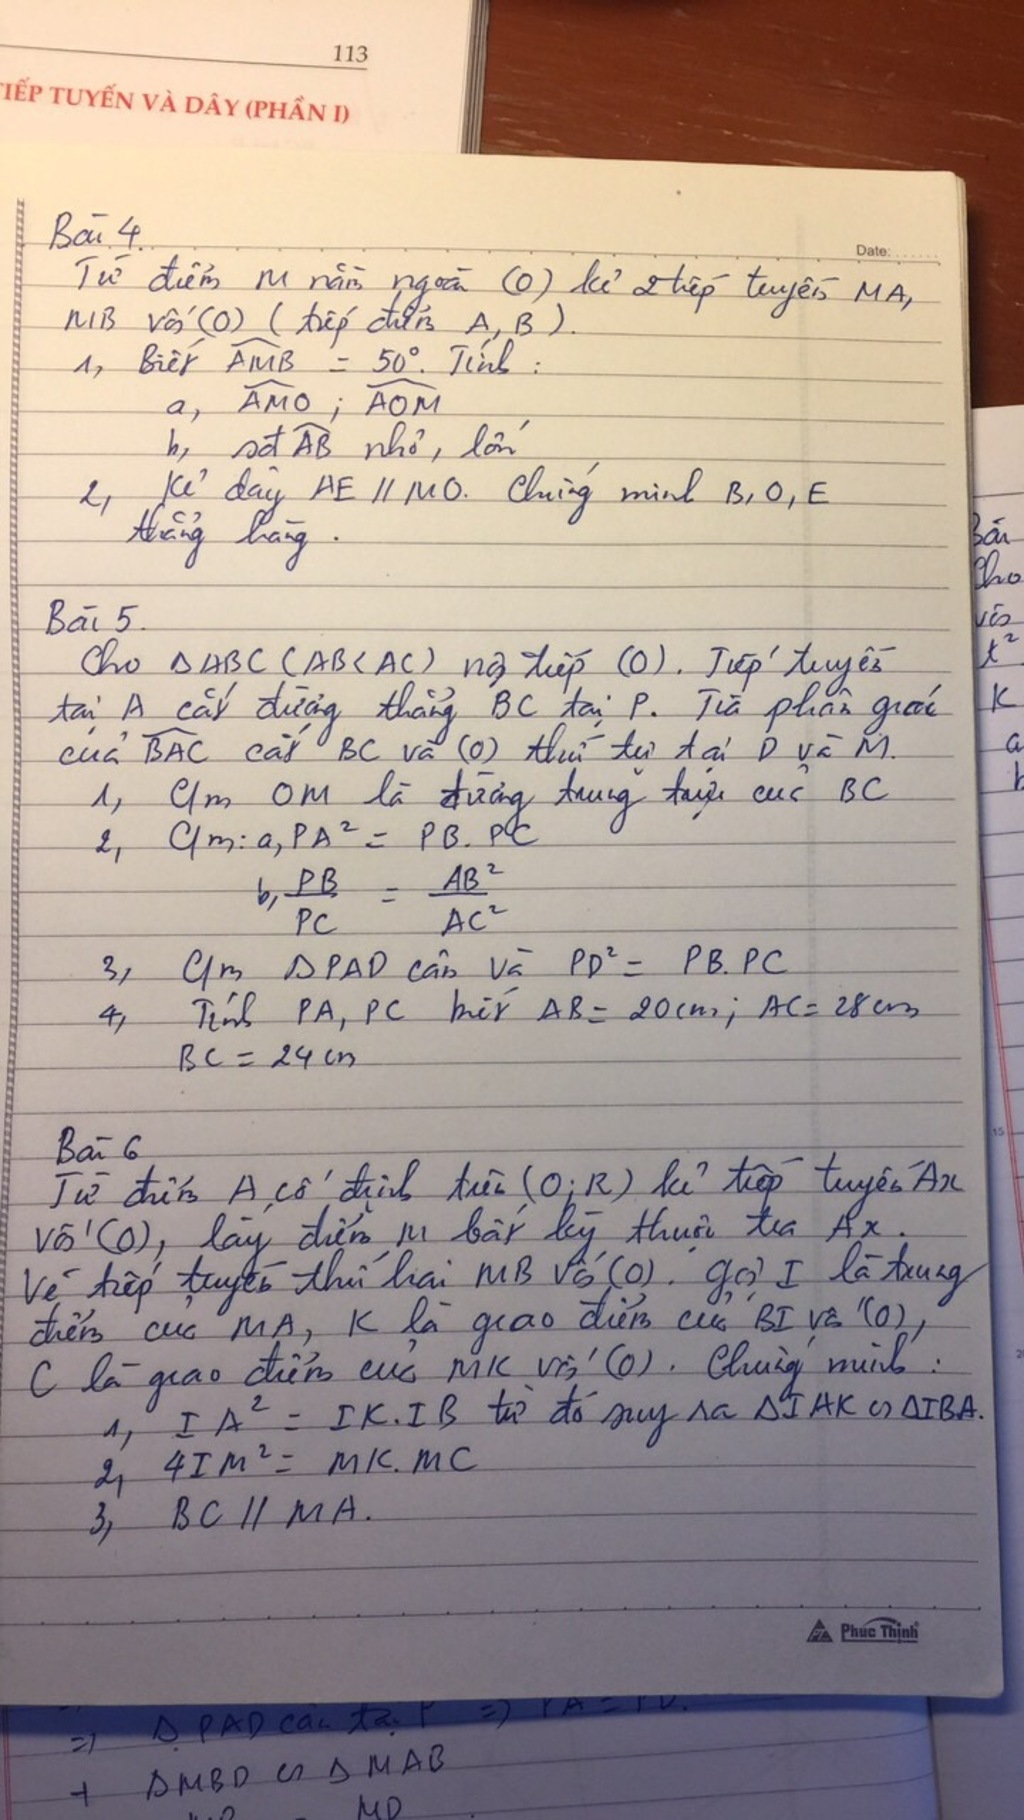 113
TIẾP TUYẾN VÀ DÂY (PHẦN I)
Date:
Bài 4.
Từ điểm M nằm ngoài (O) kẻ 2 tiếp tuyến MA,
MB với (O) (tiếp điểm A, B).
1, Biết AMB = 50°. Tính:
a, AMO; AOM
b, sđ AB nhỏ, lớn
2, Kẻ dây AE // MO. Chứng minh B, O, E
thẳng hàng.
Bài 5.
Cho ΔABC (AB<AC) nội tiếp (O). Tiếp tuyến
tại A cắt đường thẳng BC tại P. Tia phân giác
của BAC cắt BC và (O) thứ tự tại D và M.
1, C/m OM là đường trung trực của BC
2, C/m: a, PA² = PB.PC
b, PB/PC = AB²/AC²
3, C/m ΔPAD cân và PD² = PB.PC
4, Tính PA, PC biết AB = 20cm; AC = 28cm
BC = 24cm
Bài 6
Từ điểm A cố định trên (O;R) kẻ tiếp tuyến Ax
với (O), lấy điểm M bất kỳ thuộc tia Ax.
Vẽ tiếp tuyến thứ hai MB với (O). Gọi I là trung
điểm của MA, K là giao điểm của BI với (O),
C là giao điểm của MK với (O). Chứng minh:
1, IA² = IK.IB từ đó suy ra ΔIAK ∽ ΔIBA.
2, 4IM² = MK.MC
3, BC // MA.
Phúc Thịnh
=> ΔPAD cân tại P => PA = PD.
+ ΔMBD ∽ ΔMAB
MD
Bài
Cho
với
K
a
b
15